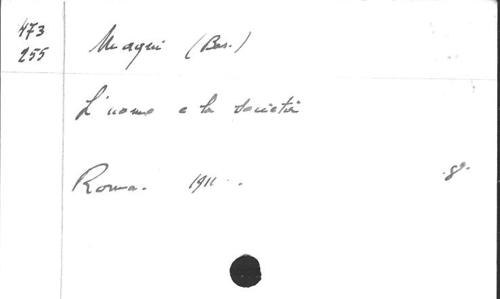 473
255
Magni (Bas.)
L'uomo e la società
Roma. 1911. 8°.